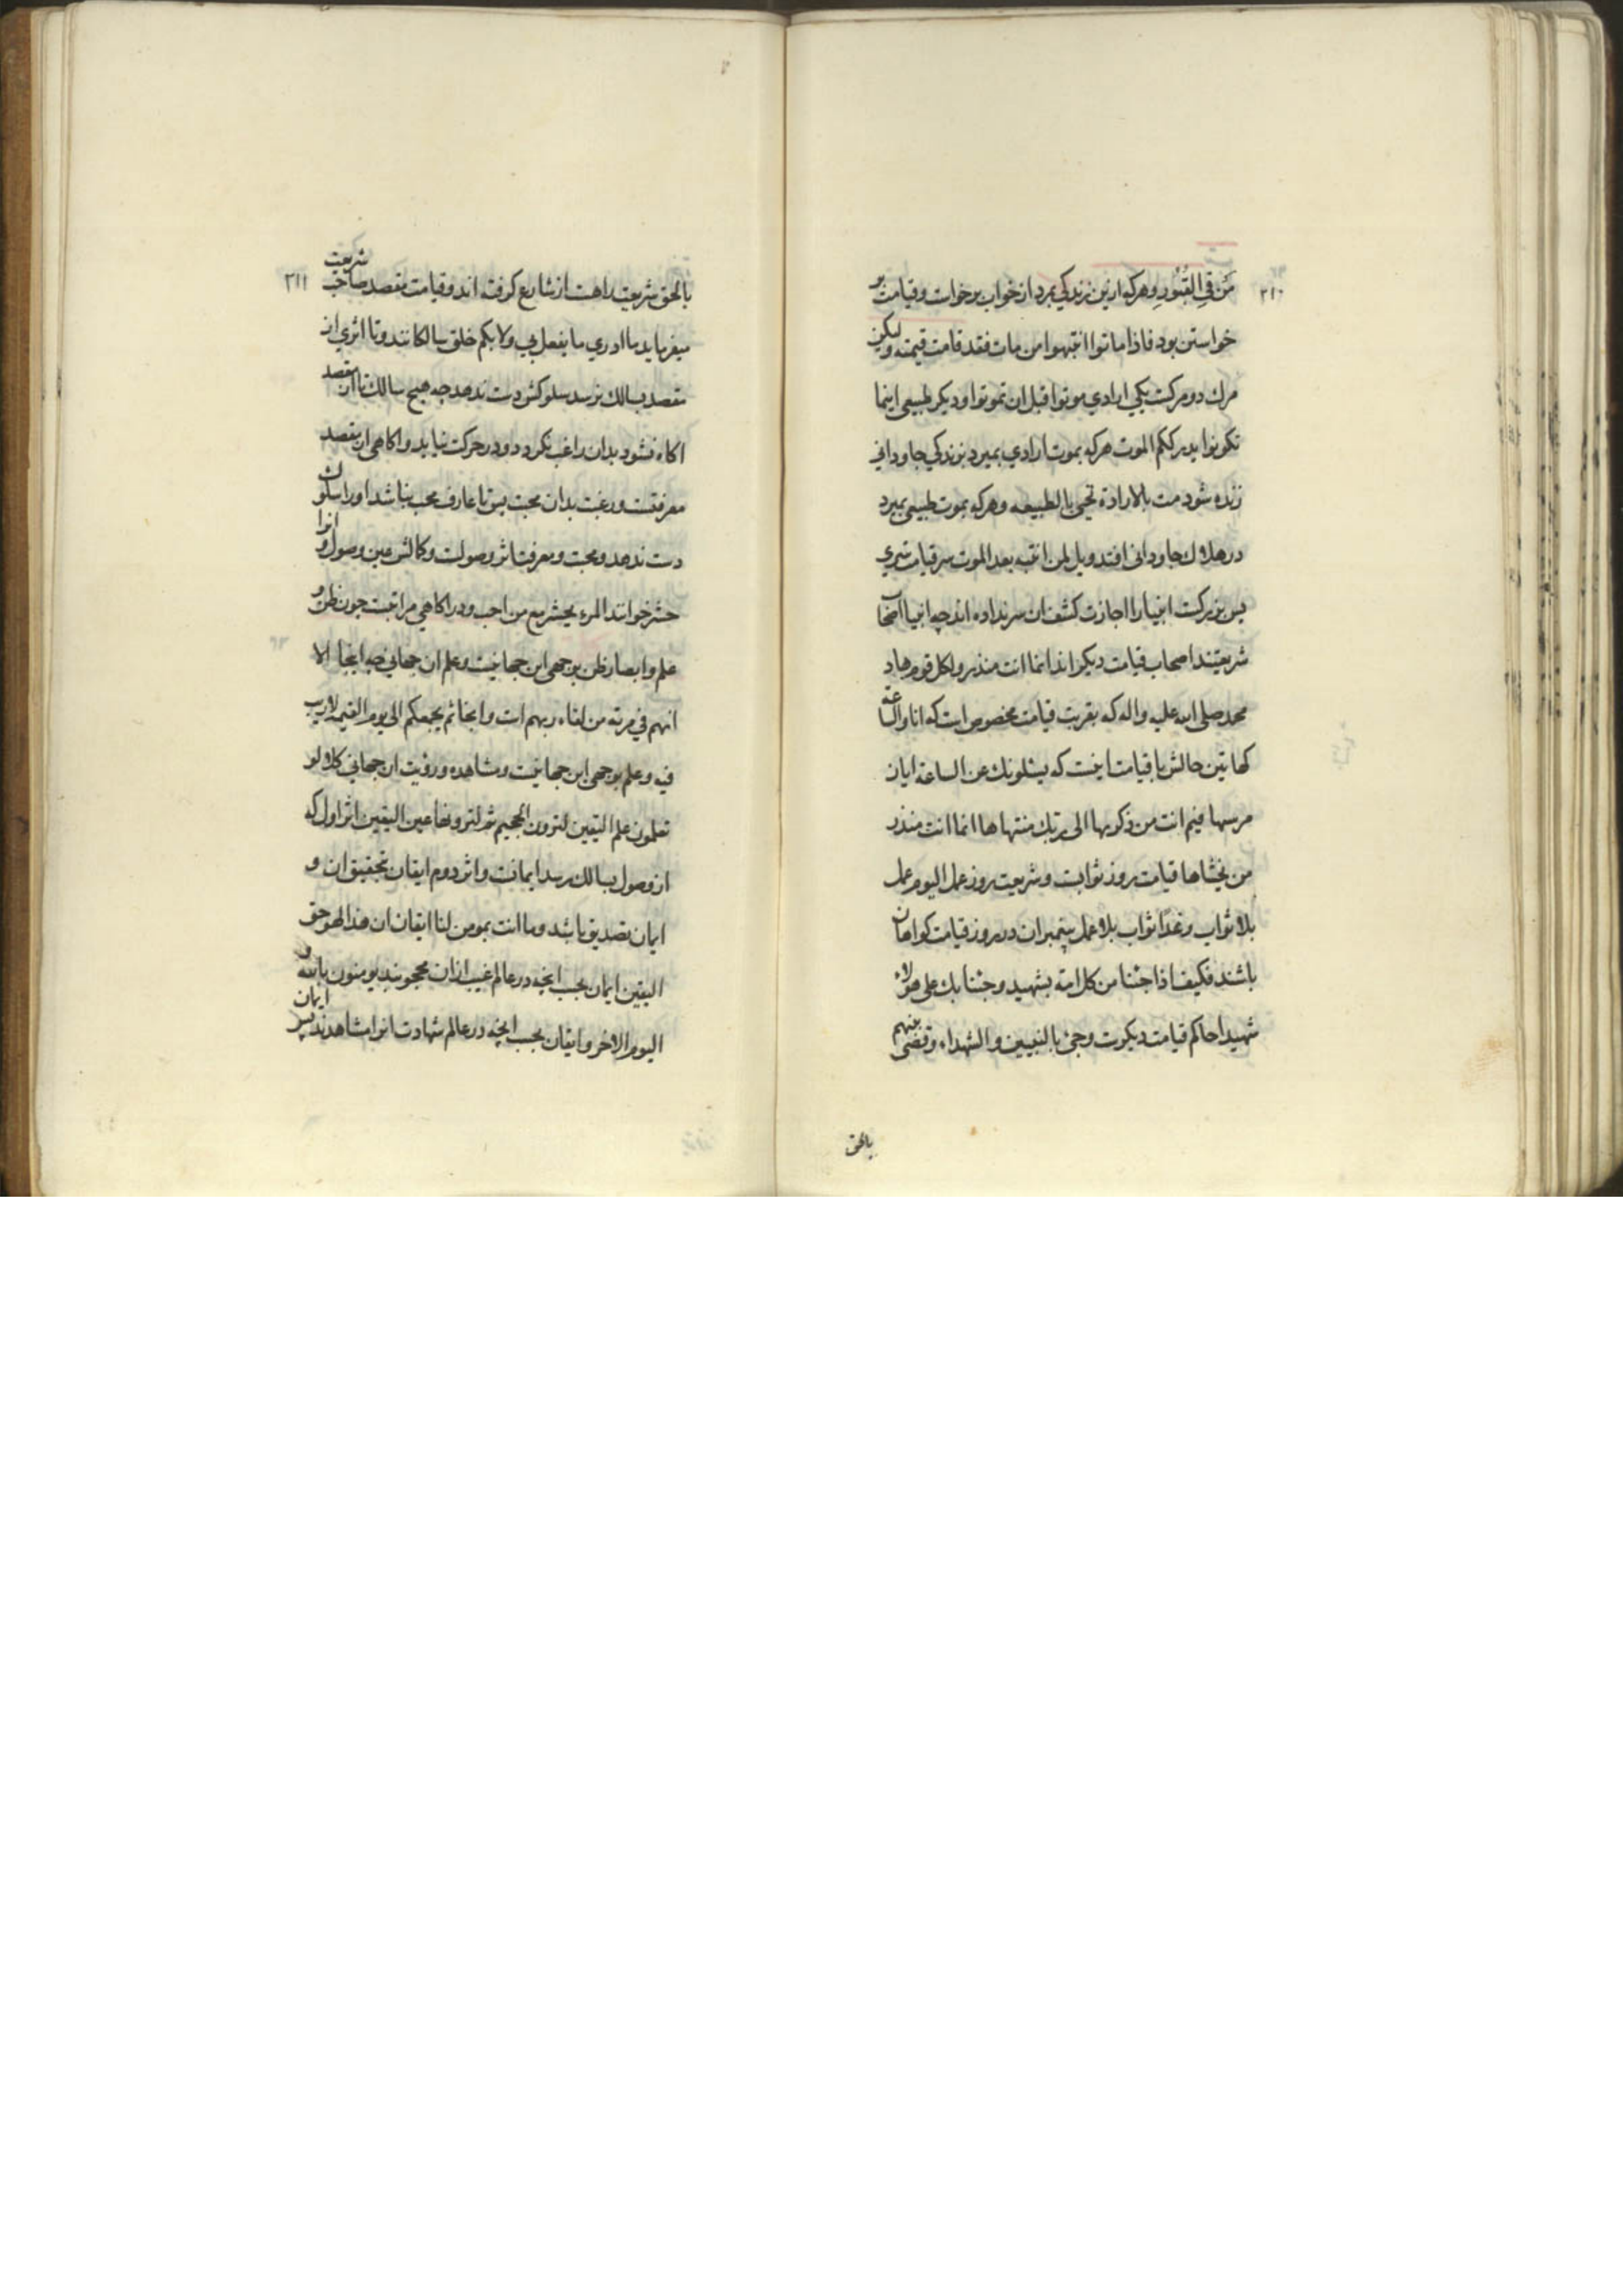 ۳۱۰
مَن فِي القُبُورِ وهركه ازين زندكي بمرد از خواب برخواست و قيامت بر
خواستن بود فاذا ماتوا انتبهوا من مات فقد قامت قيمته وليكن
مرك دو مركست يكي ارادي موتوا قبل ان تموتوا و ديكر طبيعي اينما
تكونوا يدرككم الموت هركه بموت ارادي بميرد بزندكي جاوداني
زنده شود مت بالارادة تحيى بالطبيعه وهركه بموت طبيعي بميرد
در هلاك جاوداني افتد ويل لمن انتبه بعد الموت سر قيامت سري
بس بزركست انبيا را اجازت كشف ان سر نداده اند چه انبيا اصحاب
شريعتند اصحاب قيامت ديكراند انما انت منذر ولكل قوم هاد
محمد صلى الله عليه واله كه بقربت قيامت مخصوص است كه انا والساعة
كهاتين حالش با قيامت اينست كه يسئلونك عن الساعة ايان
مرسيها فيم انت من ذكريها الى ربك منتهاها انما انت منذر
من يخشاها قيامت روز ثوابست و شريعت روز عمل اليوم عمل
بلا ثواب وغدا ثواب بلا عمل پيغمبران در روز قيامت كواهان
باشند فكيف اذا جئنا من كل امة بشهيد وجئنا بك على هولاء
شهيدا حاكم قيامت ديكرست وجئ بالنبيين والشهداء وقضى بينهم
بالحق
۳۱۱
بالحق شريعت راهست از شارع كرفته اند و قيامت مقصد صاحب شريعت
ميفرمايد ما ادري ما يفعل بي ولا بكم خلق سالكانند و تا اثري از
مقصد بسالك نرسد سلوكش دست ندهد چه هيچ سالك تا از مقصد
اكاه نشود بدان راغب نكردد و در حركت نيايد و اكاهي از مقصد
معرفتست و رغبت بدان محبت پس تا عارف محب نباشد او را سلوك
دست ندهد و محبت و معرفت اثر وصولست و كمالش عين وصول و انرا
حشر خوانند المرء يحشر مع من احب و در اكاهي مراتبست چون ظن و
علم و ابصار ظن بوجهي اين جهانيست و علم ان جهاني چه اينجا الا
انهم في مرية من لقاء ربهم است و انجا ثم يجمعكم الى يوم القيمة لاريب
فيه و علم بوجهي اين جهانيست و مشاهده و رؤيت ان جهاني كلا لو
تعلمون علم اليقين لترون الجحيم ثم لترونها عين اليقين اثر اول كه
از وصول بسالك رسد ايمانست و اثر دوم ايقان تحقيق ان و
ايمان تصديق باشد وما انت بمومن لنا ايقان ان هذا لهو حق
اليقين ايمان بحسب انچه در عالم غيب ازان محجوبند يومنون بالله و
اليوم الاخر و ايقان بحسب انچه در عالم شهادت انرا مشاهدند پس ايمان